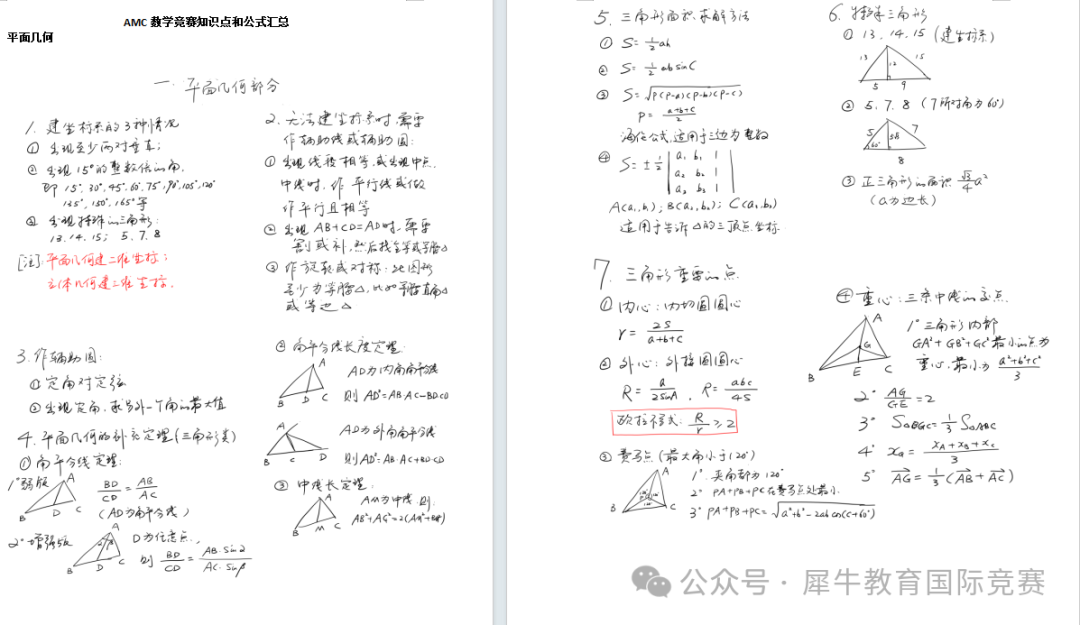 AMC 数学竞赛知识点和公式汇总
平面几何
一. 平面几何部分
1. 建坐标系的3种情况
① 出现至少两对垂直;
② 出现15°的整数倍的角,
即 15°,30°,45°,60°,75°,90°,105°,120°
135°,150°,165°等
③ 出现特殊的三角形:
13.14.15; 5.7.8
[注]:平面几何建二维坐标;
立体几何建三维坐标.
2. 无法建坐标系时,需要
作辅助线或辅助圆:
① 出现线段相等,或出现中点,
中线时,作平行线或做
作平行且相等
② 出现 AB+CD=AD时,需要
割或补,然后找全等或等腰△
③ 作旋转或对称:此图形
至少为等腰△,比如等腰直角△
或等边△
3. 作辅助圆:
① 定角对定弦
② 出现定角,求另外一个角的最大值
4. 平面几何的补充定理(三角形类)
① 角平分线定理:
1°弱版
A
B
D
C
BD/CD = AB/AC
(AD为角平分线)
2°增强版
A
B
D
C
D为任意点,
则 BD/CD = AB·sinα/AC·sinβ
② 角平分线长度定理:
A
B
D
C
AD为内角角平分线
则 AD²=AB·AC-BD·CD
A
B
C
D
AD为外角角平分线
则AD²=-AB·AC+BD·CD
③ 中线长定理:
A
B
M
C
AM为中线,则
AB²+AC²=2(AM²+BM²)
5. 三角形面积求解方法
① S=½ah
② S=½absinC
③ S=√P(P-a)(P-b)(P-c)
P=a+b+c/2
海伦公式,适用于三边为整数
④ S=±½ | a₁ b₁ 1 |
| a₂ b₂ 1 |
| a₃ b₃ 1 |
A(a₁,b₁); B(a₂,b₂); C(a₃,b₃)
适用于告诉△的三顶点坐标
6. 特殊三角形
① 13, 14, 15 (建坐标系)
13
12
15
5
9
② 5. 7. 8 (7所对角为60°)
5
7
60°
8
③ 正三角形的面积 √3/4 a²
(a为边长)
7. 三角形重要的点
① 内心:内切圆圆心
r=2S/a+b+c
② 外心:外接圆圆心
R=a/2sinA, R=abc/4S
欧拉不等式: R/r≥2
③ 费马点(最大角小于120°)
A
B
C
P
1°. 夹角都为120°
2° PA+PB+PC在费马点处最小
3° PA+PB+PC=√a²+b²-2abcos(C+60°)
④ 重心:三条中线的交点
A
G
B
E
C
1° 三角形内部
GA²+GB²+GC²最小的点为
重心,最小为 a²+b²+c²/3
2° AG/GE=2
3° S△BGC=⅓S△ABC
4° x_G=x_A+x_B+x_C/3
5° AG=⅓(AB+AC)
公众号·犀牛教育国际竞赛